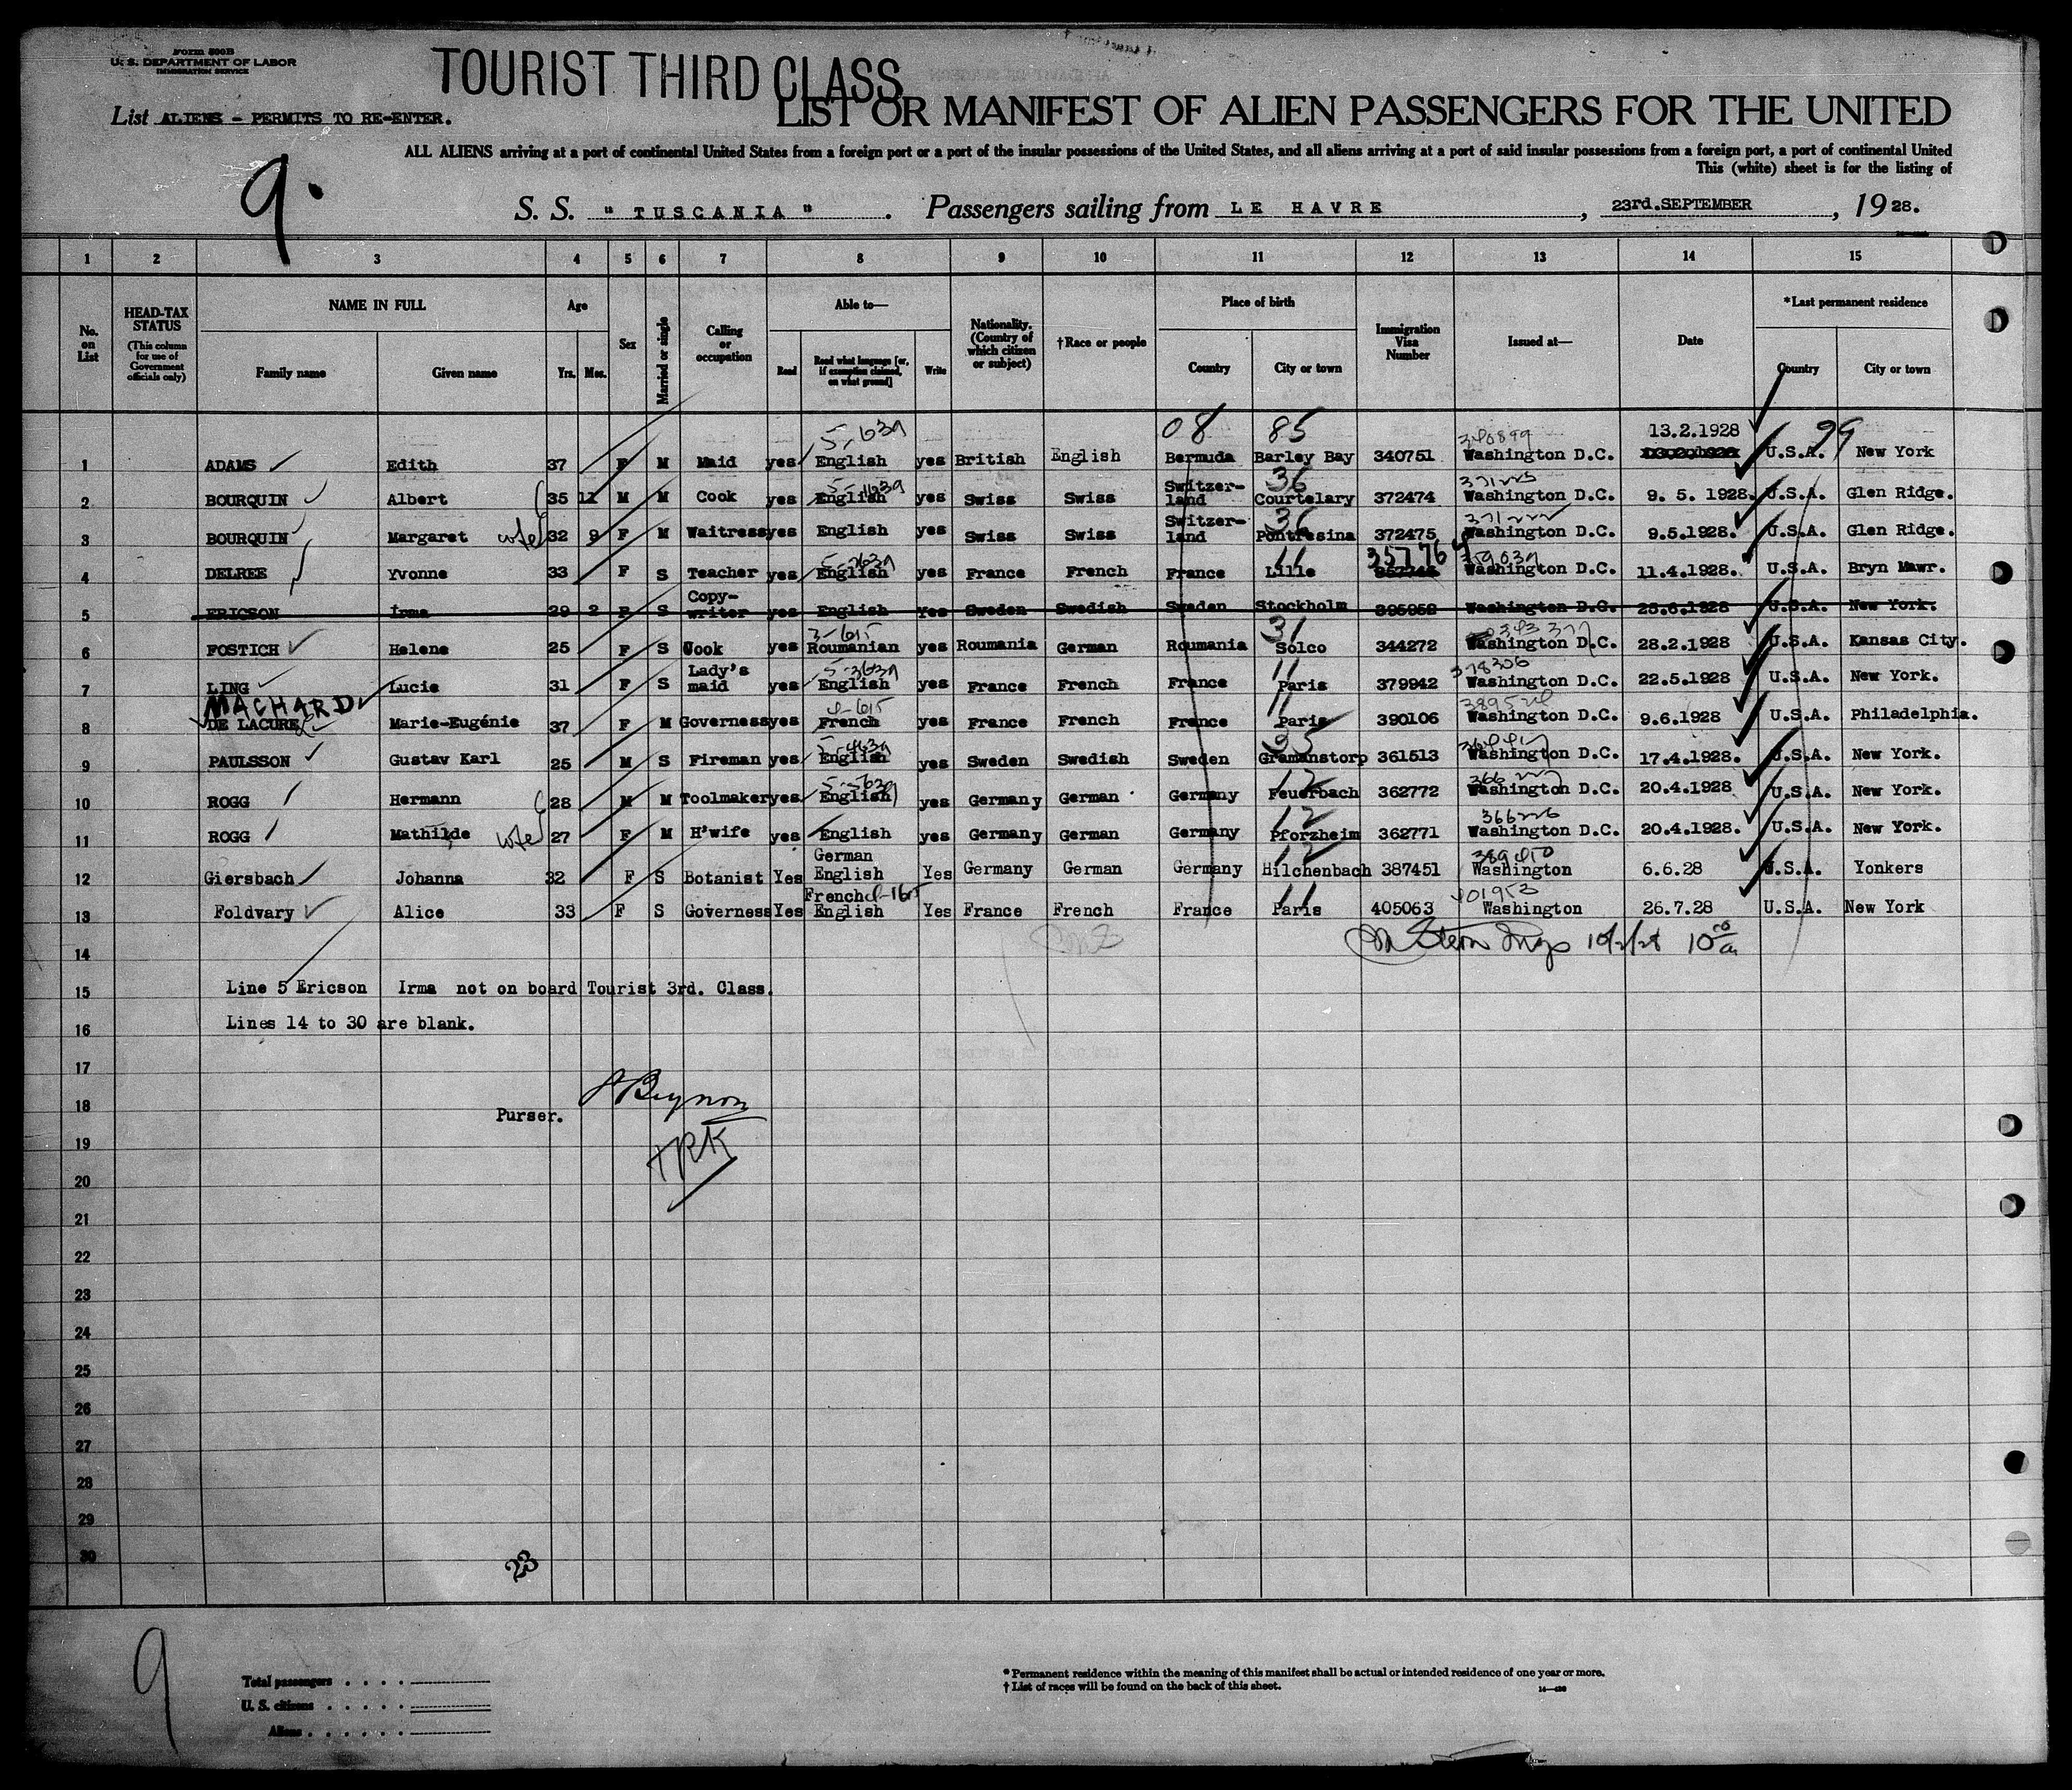 Form 500B
U. S. DEPARTMENT OF LABOR
IMMIGRATION SERVICE
TOURIST THIRD CLASS
List ALIENS - PERMITS TO RE-ENTER.
LIST OR MANIFEST OF ALIEN PASSENGERS FOR THE UNITED
ALL ALIENS arriving at a port of continental United States from a foreign port or a port of the insular possessions of the United States, and all aliens arriving at a port of said insular possessions from a foreign port, a port of continental United
This (white) sheet is for the listing of
9.
S. S. " TUSCANIA " . Passengers sailing from LE HAVRE , 23rd.SEPTEMBER , 19 28.
1 2 3 4 5 6 7 8 9 10 11 12 13 14 15
No. on List
HEAD-TAX STATUS (This column for use of Government officials only)
NAME IN FULL
Family name Given name
Age
Yrs. Mos.
Sex
Married or single
Calling or occupation
Able to—
Read Read what language [or, if exemption claimed, on what ground] Write
Nationality. (Country of which citizen or subject)
†Race or people
Place of birth
Country City or town
Immigration Visa Number
Issued at—
Date
*Last permanent residence
Country City or town
08 85 340899 13.2.1928 99
1 ADAMS Edith 37 F M Maid yes English yes British English Bermuda Barley Bay 340751 Washington D.C. U.S.A. New York
2 BOURQUIN Albert 35 11 M M Cook yes English yes Swiss Swiss Switzer-land Courtelary 36 372474 Washington D.C. 9. 5. 1928. U.S.A. Glen Ridge.
3 BOURQUIN Margaret wife 32 9 F M Waitress yes English yes Swiss Swiss Switzer-land Pontresina 36 372475 Washington D.C. 9.5.1928. U.S.A. Glen Ridge.
4 DELREE Yvonne 33 F S Teacher yes English yes France French France Lille 11 357764 Washington D.C. 11.4.1928. U.S.A. Bryn Mawr.
5 ERICSON Irma 29 2 F S Copy-writer yes English Yes Sweden Swedish Sweden Stockholm 395958 Washington D.C. 25.6.1928 U.S.A. New York.
6 FOSTICH Helene 25 F S Cook yes Roumanian yes Roumania German Roumania Solco 31 344272 Washington D.C. 28.2.1928 U.S.A. Kansas City.
7 LING Lucie 31 F S Lady's maid yes English yes France French France Paris 11 379942 378306 Washington D.C. 22.5.1928 U.S.A. New York.
MACHARD
8 DE LACURE Marie-Eugénie 37 F M Governess yes French yes France French France Paris 11 390106 Washington D.C. 9.6.1928 U.S.A. Philadelphia.
9 PAULSSON Gustav Karl 25 M S Fireman yes English yes Sweden Swedish Sweden Gramanstorp 35 361513 Washington D.C. 17.4.1928. U.S.A. New York.
10 ROGG Hermann 28 M M Toolmaker yes English yes Germany German Germany Feuerbach 12 362772 Washington D.C. 20.4.1928 U.S.A. New York.
11 ROGG Mathilde wife 27 F M H'wife yes English yes Germany German Germany Pforzheim 12 362771 Washington D.C. 20.4.1928. U.S.A. New York.
12 Giersbach Johanna 32 F S Botanist Yes German English Yes Germany German Germany Hilchenbach 12 387451 Washington 6.6.28 U.S.A. Yonkers
13 Foldvary Alice 33 F S Governess Yes French English Yes France French France Paris 11 405063 401953 Washington 26.7.28 U.S.A. New York
14
15 Line 5 Ericson Irma not on board Tourist 3rd. Class.
16 Lines 14 to 30 are blank.
17
18 Purser. Beynon
19
20
21
22
23
24
25
26
27
28
29
30
23
9
Total passengers
U. S. citizens
Aliens
* Permanent residence within the meaning of this manifest shall be actual or intended residence of one year or more.
† List of races will be found on the back of this sheet.